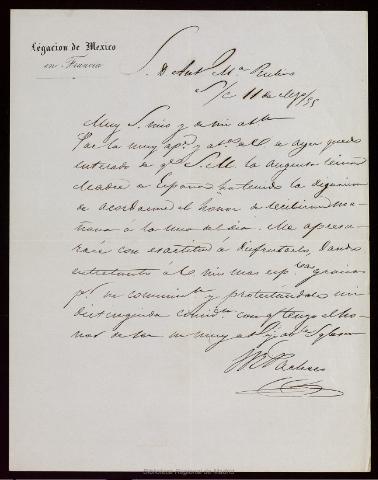 Legacion de Mexico
en Francia
S. D. Ant. Mª Rubio
S/C 11 de Mzo/55
Muy S. mio y de mi
Por la muy ap. y at. de V. de ayer quedo
enterado de q. S. M. la augusta Reina
Madre de España ha tenido la dignacion
de acordarme el honor de recibirme ma-
ñana á la una del dia. Me apresu-
raré con exactitud á disfrutarlo, dando
entretanto á V. mis mas esp. gracias
p. su comunic. y protestandole mi
distinguida consid. con q. tengo el ho-
nor de ser su muy at. Servidor
Pacheco
Biblioteca Regional de Madrid